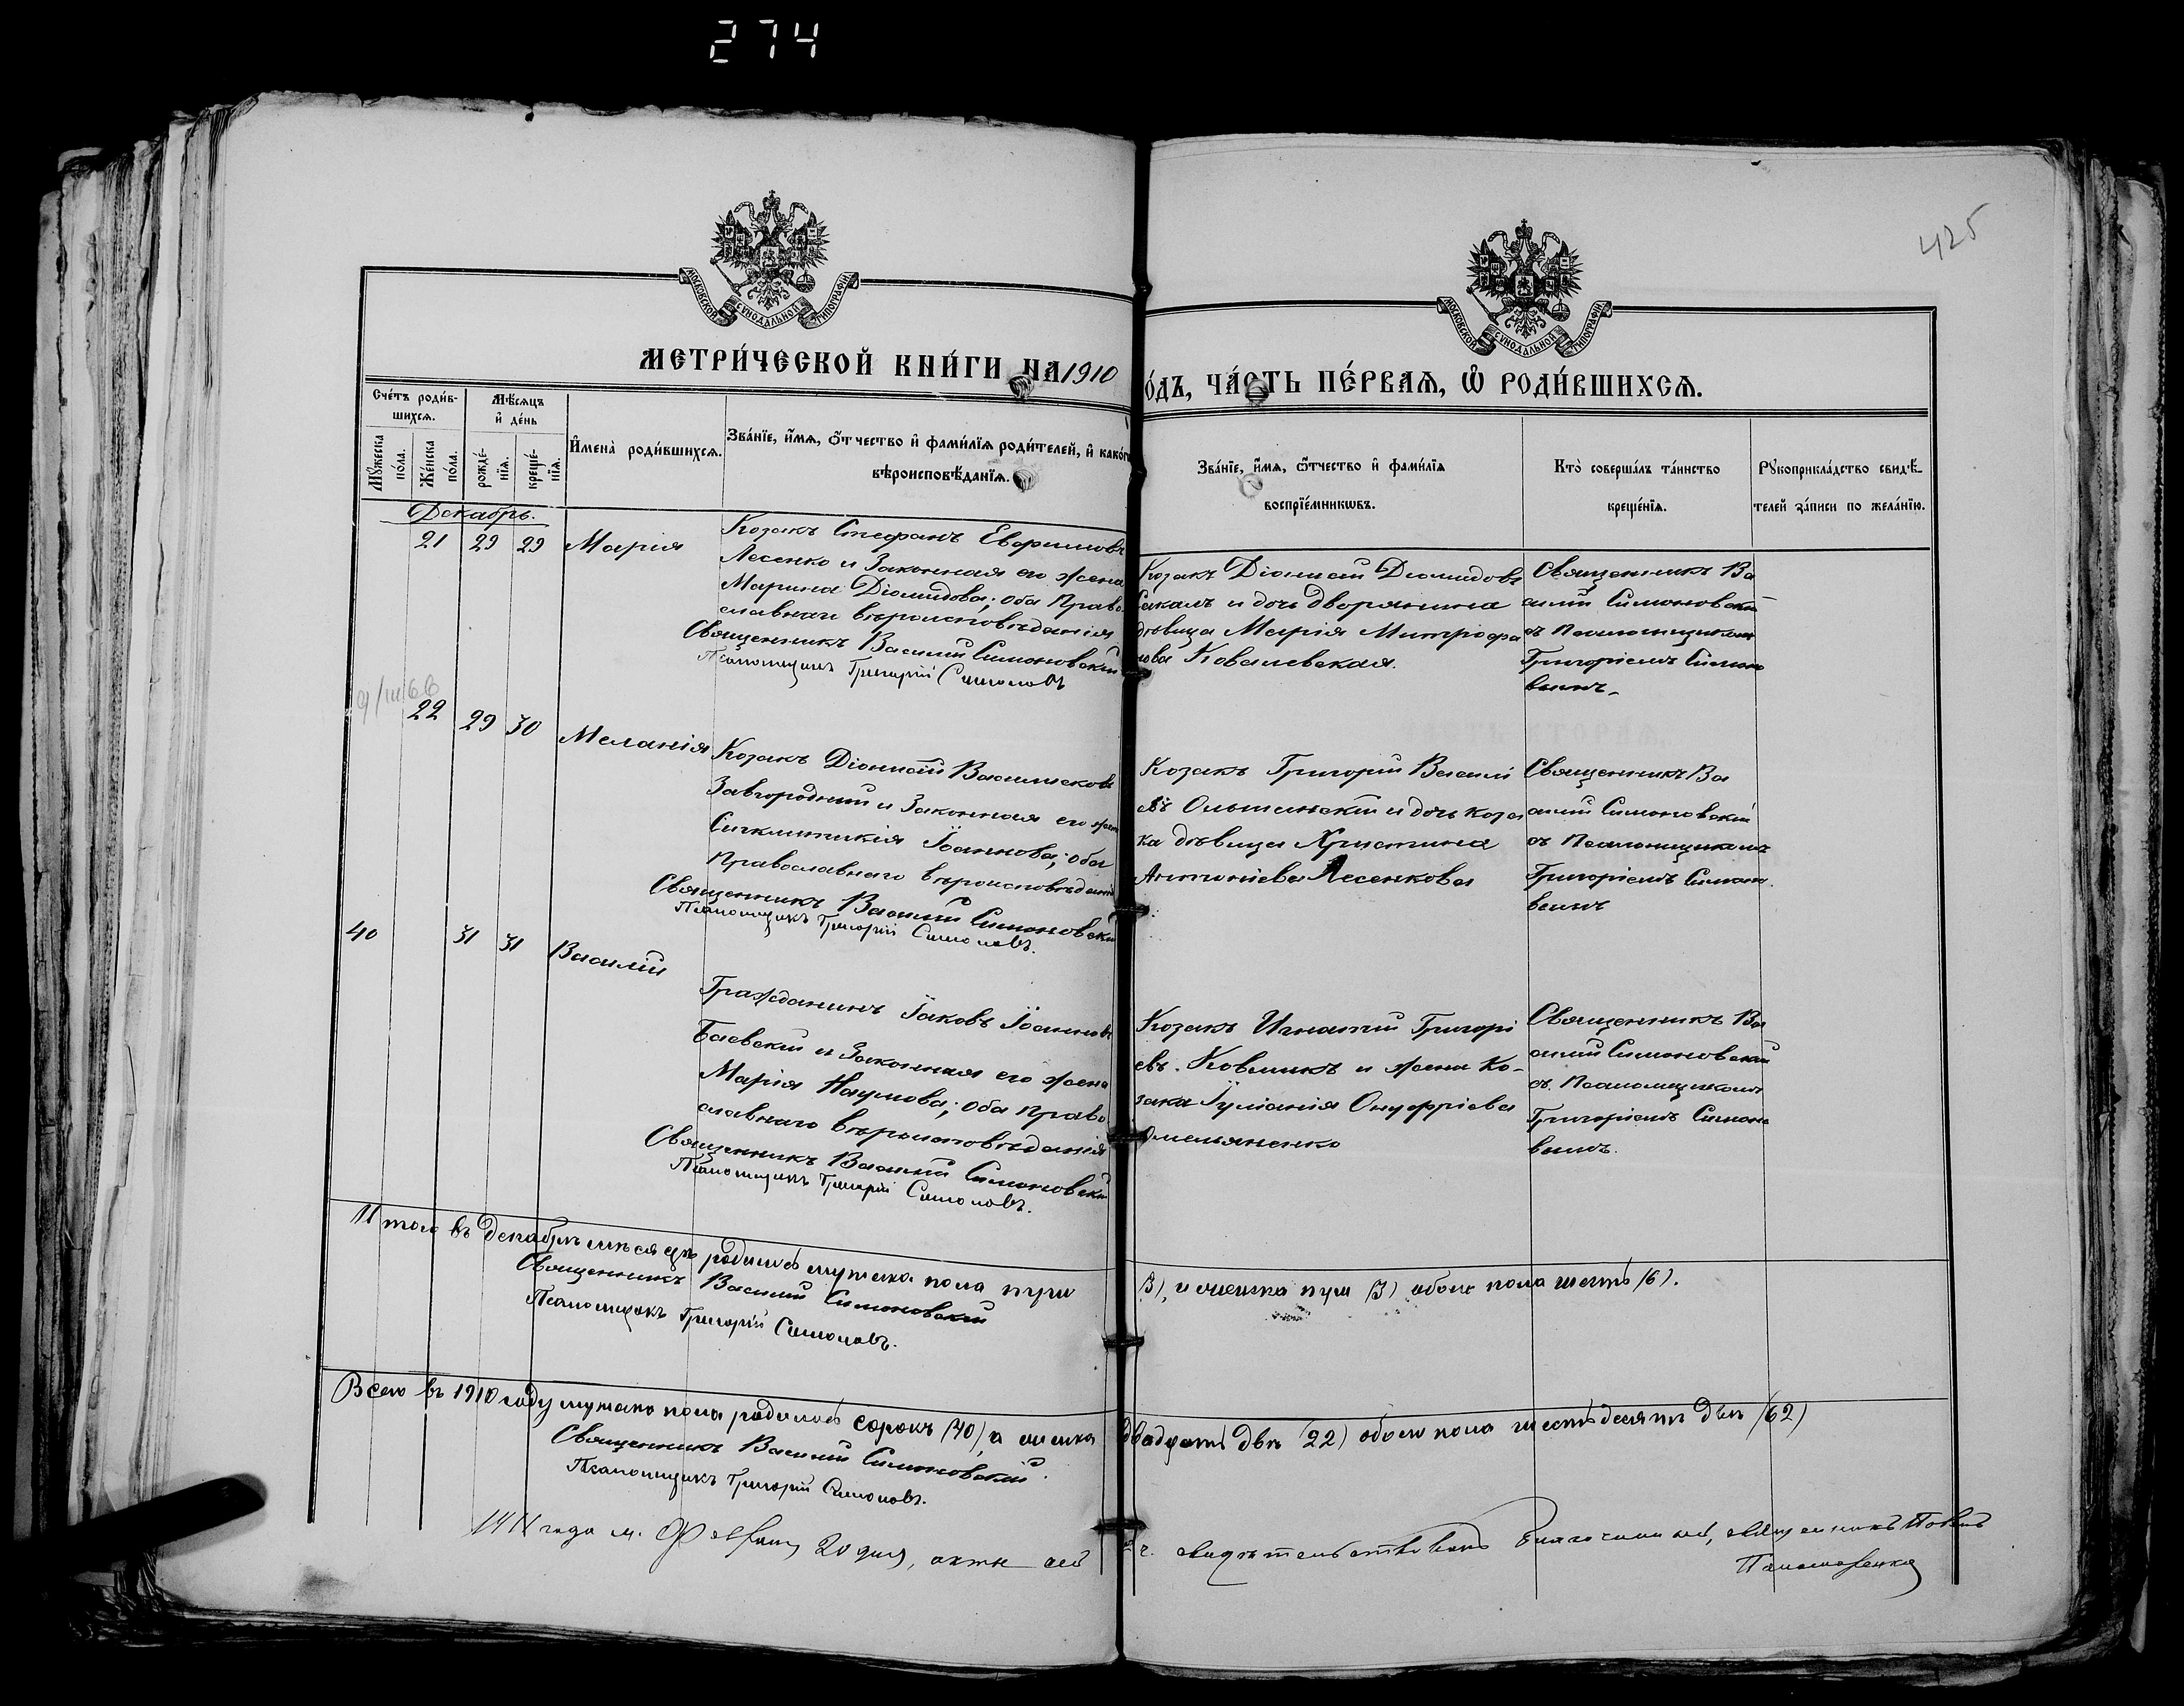 274
425
МОСКОВСКОЙ СѴНОДАЛЬНОЙ ТИПОГРАФІИ
МОСКОВСКОЙ СѴНОДАЛЬНОЙ ТИПОГРАФІИ
МЕТРИ́ЧЕСКОЙ КНИ́ГИ НА 1910
О́ДЪ, ЧА́СТЬ ПЕ́РВАѦ, Ѿ РОДИ́ВШИХСѦ.
Сче́тъ роди́в-
шихсѧ.
Мꙋ́жеска
по́ла.
Же́нска
по́ла.
Мѣ́сѧцъ
и҆ де́нь
рожде́-
нїѧ.
креще́-
нїѧ.
И҆мена̀ роди́вшихсѧ.
Зва́нїе, и҆́мѧ, ѻ҆́тчество и҆ фами́лїѧ роди́телей, и҆ како́г
вѣроисповѣ́данїѧ.
Зва́нїе, и҆́мѧ, ѻ҆́тчество и҆ фами́лїѧ
воспрїе́мникѡвъ.
Кто̀ соверша́лъ та́инство
креще́нїѧ.
Рꙋкоприкла́дство свидѣ́-
телей за́писи по жела́нїю.
Декабрь.
21 29 29 Марія
Козакъ Стефанъ Евфимовъ
Лесенко и Законная его жена
Марина Діомидова; оба Право
славнаго вѣроисповѣданія
Священникъ Василій Симоновскій
Псаломщикъ Григорій Симоновъ
Козакъ Діонисій Диомидовъ
Сакалъ и дочь дворянина
дѣвица Марія Митрофа
нова Ковалевская.
Священникъ Ва
силій Симоновскій
съ Псаломщикомъ
Григоріемъ Симоно
вымъ.
9/III 66
22 29 30 Меланія
Козакъ Діонисій Василиековъ
Завгородній и Законная его жен
Сигклитикія Іоаннова; оба
Православнаго вѣроисповѣданія
Священникъ Василій Симоновскій
Псаломщикъ Григорій Симоновъ.
Козакъ Григорій Василі
евъ Ольшанскій и дочь коза
ка дѣвица Христина
Антоніева Лесенкова
Священникъ Ва
силій Симоновскій
съ Псаломщикомъ
Григоріемъ Симоно
вымъ
40 31 31 Василій
Гражданинъ Іаковъ Іоанновъ
Баевскій и Законная его жена
Марія Наумова; оба Право
славнаго вѣроисповѣданія
Священникъ Василій Симоновскій
Псаломщикъ Григорій Симоновъ.
Козакъ Игнатій Григорі
евъ Ковтикъ и жена Ко-
зака Іуліанія Онуфріева
Омельяненко
Священникъ Ва
силій Симоновскій
съ Псаломщикомъ
Григоріемъ Симоно
вымъ.
Итого въ декабрѣ мѣсяцѣ родилось мужеска пола три
3), и женска три (3) обоего пола шесть (6).
Священникъ Василій Симоновскій
Псаломщикъ Григорій Симоновъ.
Всего въ 1910 году мужеска пола родилось сорокъ (40), а женска
двадцать двѣ (22) обоего пола шестьдесятъ двѣ (62)
Священникъ Василій Симоновскій.
Псаломщикъ Григорій Симоновъ.
1911 года м. Февраля 20 дня, акты сей
свидѣтельствовалъ Благочинный, священникъ Павелъ
Пономаренко